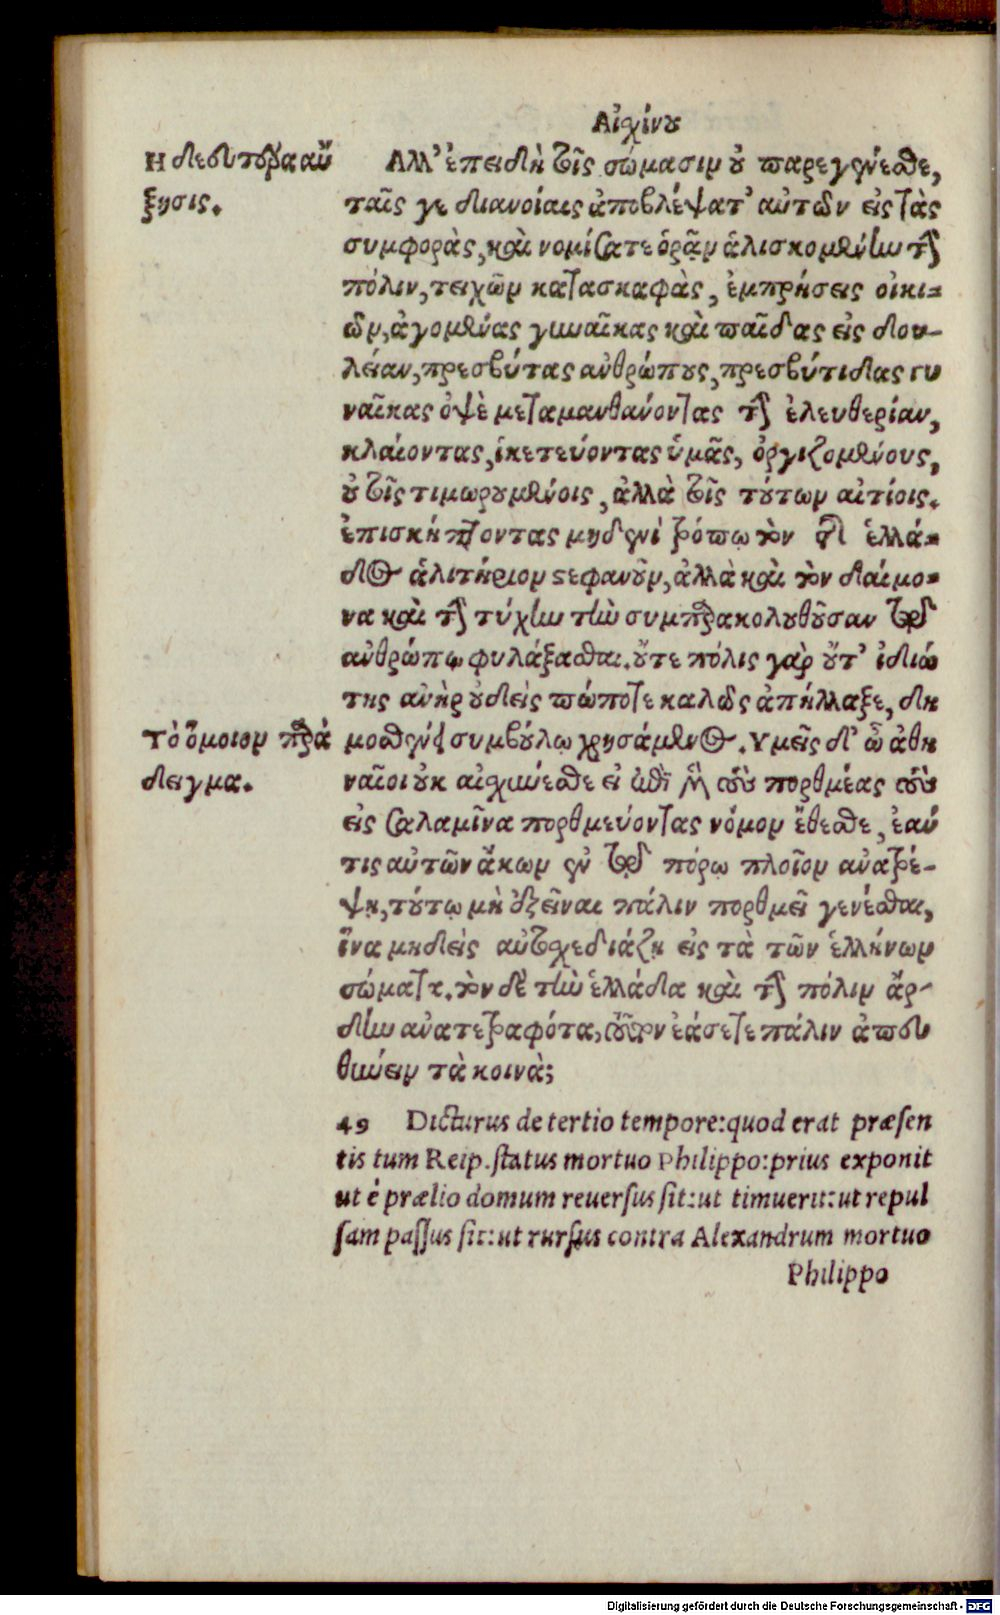 Αἰσχίνου
Ἡ δευτέρα αὔ
ξησις.
Ἀλλ' ἐπειδὴ τοῖς σώμασιν οὐ παρεγένεσθε,
ταῖς γε διανοίαις ἀποβλέψατ' αὐτῶν εἰς τὰς
συμφορὰς, καὶ νομίσατε ὁρᾷν ἁλισκομένην τὴν
πόλιν, τειχῶν κατασκαφὰς, ἐμπρήσεις οἰκι-
ῶν, ἀγομένας γυναῖκας καὶ παῖδας εἰς δου-
λείαν, πρεσβύτας ἀνθρώπους, πρεσβύτιδας γυ
ναῖκας ὀψὲ μεταμανθάνοντας τὴν ἐλευθερίαν,
κλαίοντας, ἱκετεύοντας ὑμᾶς, ὀργιζομένους,
οὐ τοῖς τιμωρουμένοις, ἀλλὰ τοῖς τούτων αἰτίοις.
ἐπισκήπτοντας μηδενὶ τρόπῳ τὸν τῆς ἑλλά-
δος ἀλιτήριον στεφανοῦν, ἀλλὰ καὶ τὸν δαίμο-
να καὶ τὴν τύχην τὴν συμπαρακολουθοῦσαν τῷ
ἀνθρώπῳ φυλάξασθαι. οὔτε πόλις γὰρ οὔτ' ἰδιώ
της ἀνὴρ οὐδεὶς πώποτε καλῶς ἀπήλλαξε, δη
Τὸ ὅμοιον παρά
δειγμα.
μοσθένει συμβούλῳ χρησάμενος. Ὑμεῖς δ' ὦ ἀθη
ναῖοι οὐκ αἰσχύνεσθε εἰ ἐπὶ μὲν τοὺς πορθμέας τοὺς
εἰς σαλαμῖνα πορθμεύοντας νόμον ἔθεσθε, ἐάν
τις αὐτῶν ἄκων ἐν τῷ πόρῳ πλοῖον ἀνατρέ-
ψῃ, τούτῳ μὴ ἐξεῖναι πάλιν πορθμεῖ γενέσθαι,
ἵνα μηδεὶς αὐτοσχεδιάζῃ εἰς τὰ τῶν ἑλλήνων
σώματα. τὸν δὲ τὴν ἑλλάδα καὶ τὴν πόλιν ἄρ-
δην ἀνατετραφότα, τοῦτον ἐάσετε πάλιν ἀπευ
θύνειν τὰ κοινά;
49 Dicturus de tertio tempore: quod erat præsen
tis tum Reip. status mortuo Philippo: prius exponit
ut é prælio domum reuersus sit: ut timuerit: ut repul
sam passus sit: ut rursus contra Alexandrum mortuo
Philippo
Digitalisierung gefördert durch die Deutsche Forschungsgemeinschaft - DFG